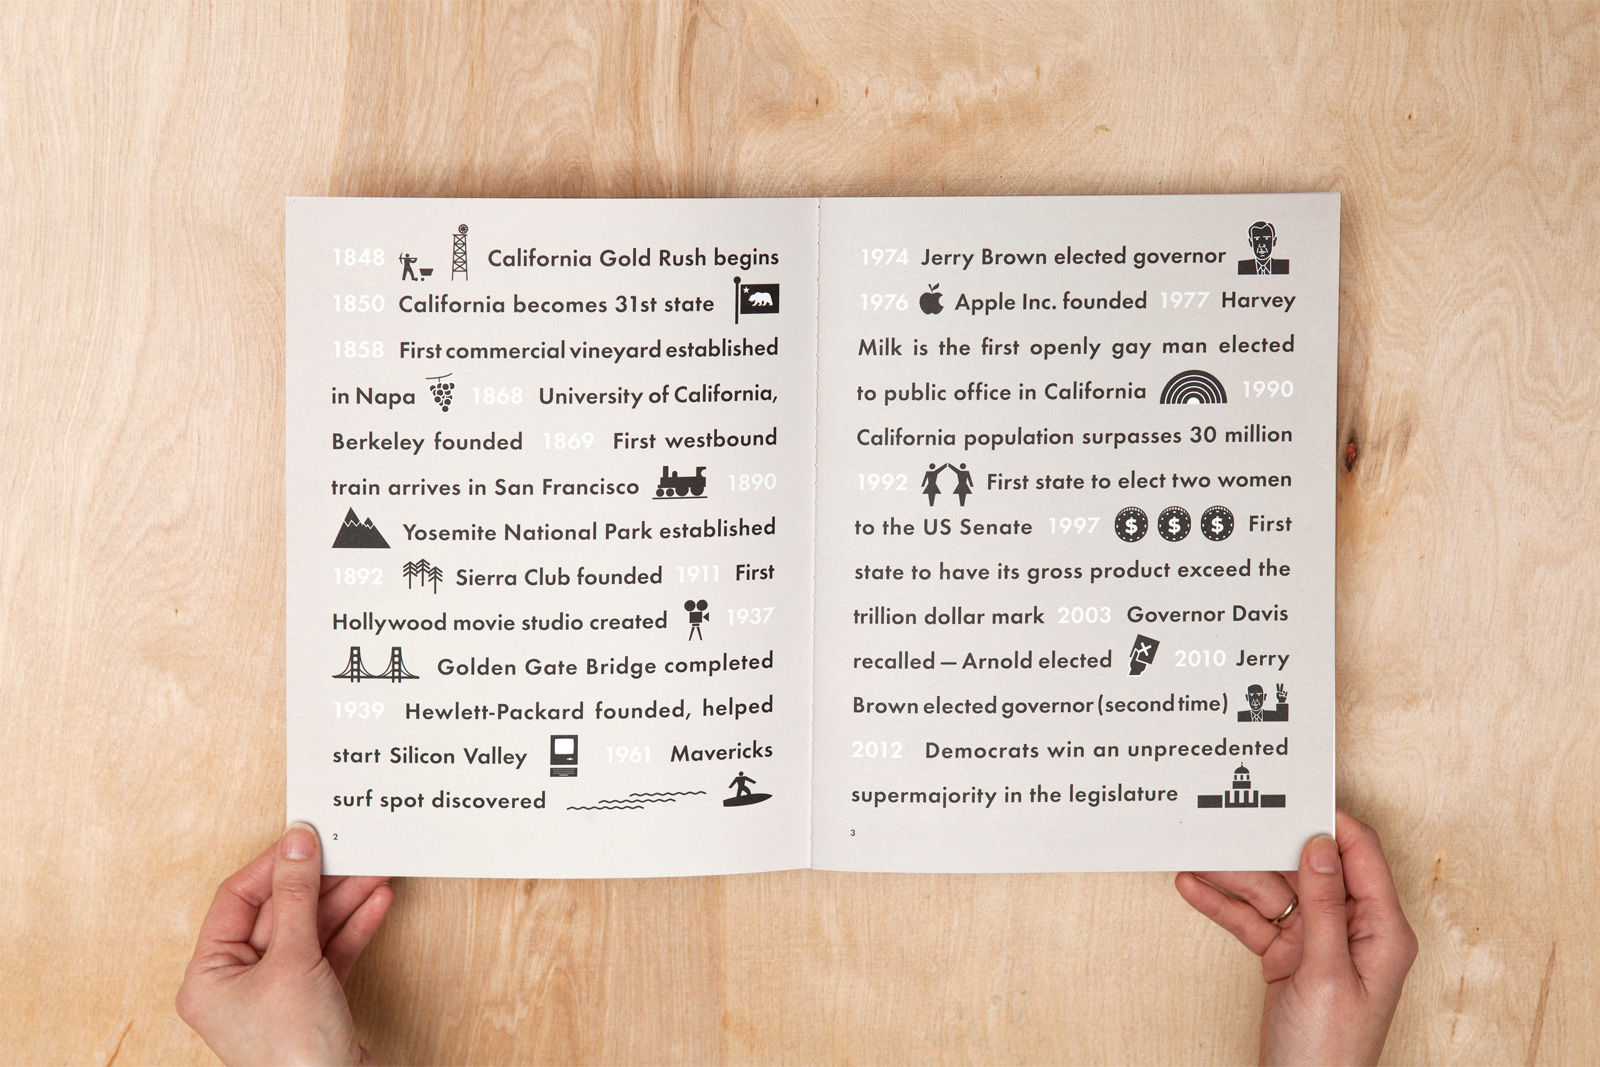 1848 California Gold Rush begins
1850 California becomes 31st state
1858 First commercial vineyard established
in Napa 1868 University of California,
Berkeley founded 1869 First westbound
train arrives in San Francisco 1890
Yosemite National Park established
1892 Sierra Club founded 1911 First
Hollywood movie studio created 1937
Golden Gate Bridge completed
1939 Hewlett-Packard founded, helped
start Silicon Valley 1961 Mavericks
surf spot discovered
2
1974 Jerry Brown elected governor
1976 Apple Inc. founded 1977 Harvey
Milk is the first openly gay man elected
to public office in California 1990
California population surpasses 30 million
1992 First state to elect two women
to the US Senate 1997 $ $ $ First
state to have its gross product exceed the
trillion dollar mark 2003 Governor Davis
recalled — Arnold elected 2010 Jerry
Brown elected governor (second time)
2012 Democrats win an unprecedented
supermajority in the legislature
3